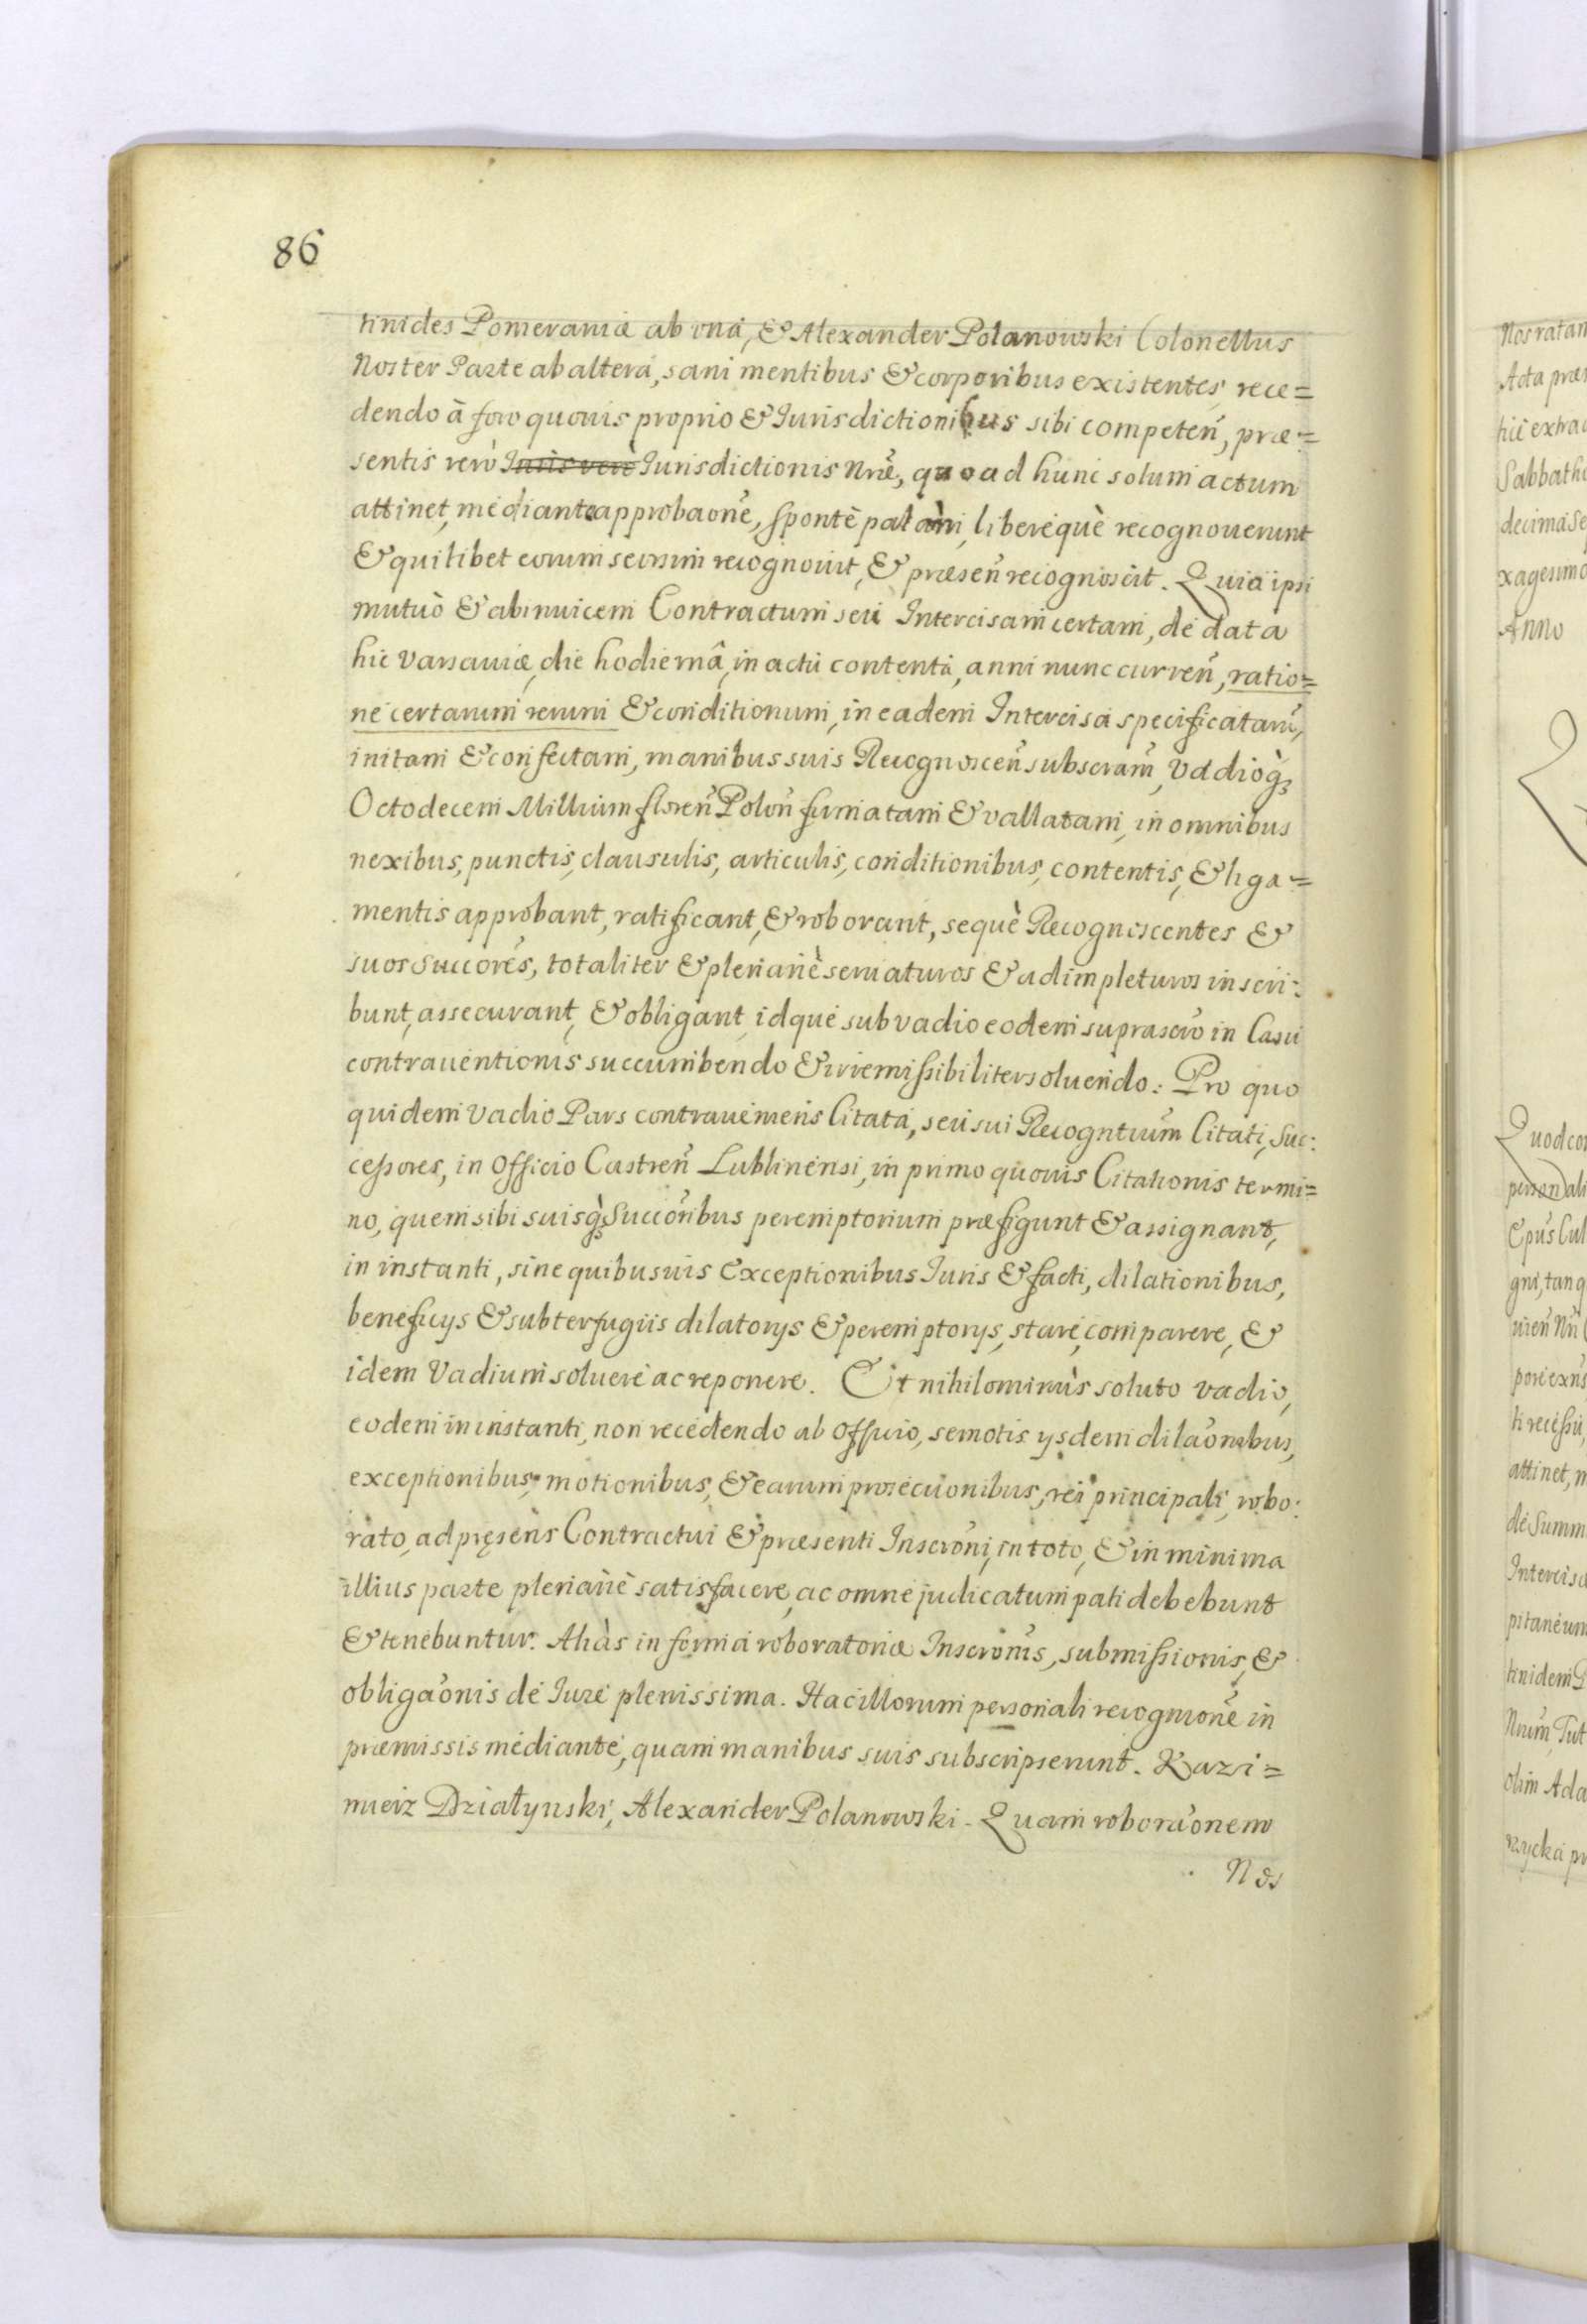 86
tinides Pomeraniæ ab vnâ, & Alexander Polanowski Colonellus
Noster Parte ab alterâ, sani mentibus & corporibus existentes, rece=
dendo à foro quovis proprio & Iurisdictionibus sibi competeñ, præ=
sentis verò Iuris verò Iurisdictionis Nrẽ, quoad hunc solum actum
attinet, mediante approbaõne, sponte palàm, liberéquè recognouerunt
& quilibet eorum seorsim recognouit, & præseñ recognoscit. Quia ipsi
mutuò & ab inuicem Contractum seu Intercisam certam, de data
hic Varsauiæ, die hodiernâ, in actu contentâ, anni nunc curreñ, ratio=
ne certarum rerum & conditionum, in eadem Intercisa specificatarũ,
initam & confectam, manibus suis Recognosceñ subscram̃, Vadioq̀3
Octodecem Millium floreñ Poloñ firmatam & vallatam, in omnibus
nexibus, punctis, clausulis, articulis, conditionibus, contentis, & liga=
mentis approbant, ratificant, & roborant, sequè Recognoscentes &
suos Succorẽs, totaliter & plenariè seruaturos & adimpleturos inscri:
bunt, assecurant, & obligant, idque sub vadio eodem suprascro in Casu
contrauentionis succumbendo & irremissibiliter soluendo: Pro quo
quidem vadio Pars contraueniens Citata, seu sui Recogntium̃ Citati, Suc:
cessores, in Officio Castreñ Lublinensi, in primo quouis Citationis termi=
no, quem sibi suisq̀3 Succorĩbus peremptorium præfigunt & assignant,
in instanti, sine quibusuis Exceptionibus Iuris & facti, dilationibus,
beneficys & subterfugiis dilatorys & peremptorys, stare, comparere, &
idem Vadium soluere ac reponere. Et nihilominùs soluto vadio,
eodem in instanti, non recedendo ab Officio, semotis ysdem dilaõnibus,
exceptionibus, motionibus, & earum prosecuõnibus, rei principali, robo:
rato, ad pręsens Contractui & præsenti Inscrõni, in toto, & in minima
illius parte plenariè satisfacere, ac omne judicatum pati debebunt
& tenebuntur. Aliàs in forma roboratoriæ Inscrõnis, submissionis, &
obligaõnis de Iure plenissima. Hac illorum personali recogniõne in
præmissis mediante, quam manibus suis subscripserunt. Kazi=
mierz Działynski, Alexander Polanowski. Quam roboraõnem
Nos
Nos ratam
Acta præs
hic extra
Sabbatho
decima Se
xagesimo
Anno
Quod cor
personali
Epus Cul
gni, tanq
pore exñs
ti recessu,
attinet, m
de Summ
Intercisa
pitaneum
tinidem P
Nrum, Tut
olim Ada